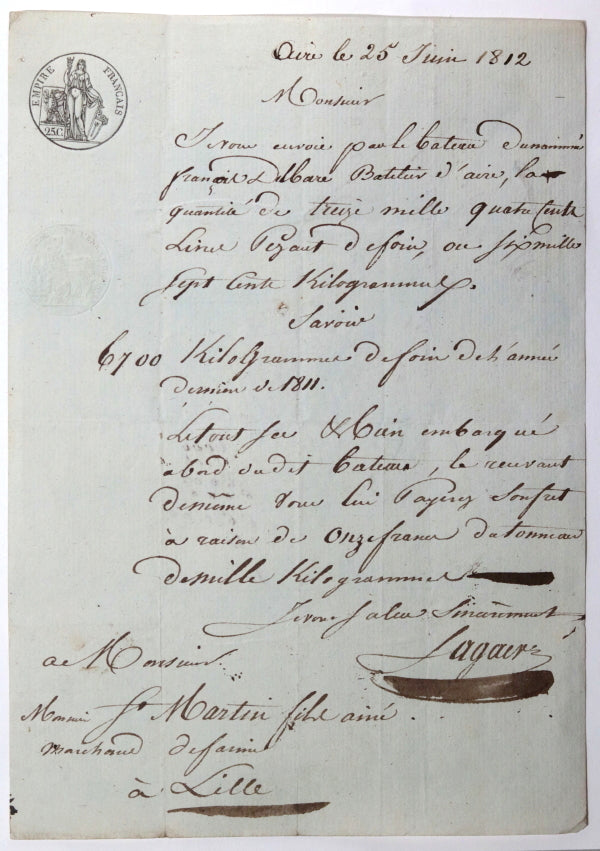 EMPIRE FRANÇAIS
25 C.
Aire le 25 Juin 1812
Monsieur
Je vous envoie par le bateau du nommé
françois Delbare Batelier d'aire, la
quantité de treize mille quatre Cents
Livres Pezant de foin, ou six mille
sept Cents Kilogrammes.
Savoir
6700 Kilogrammes de foin de l'année
derniere 1811.
Le tout sec & Bien embarqué
à bord du dit bateau, le recevant
de même vous lui Payerez Son fret
à raison de Onze francs du tonneau
de mille Kilogrammes
Je vous salue Sincérement
Lagaer
a Monsieur
Monsieur St Martin fils ainé
marchand de farine
à Lille